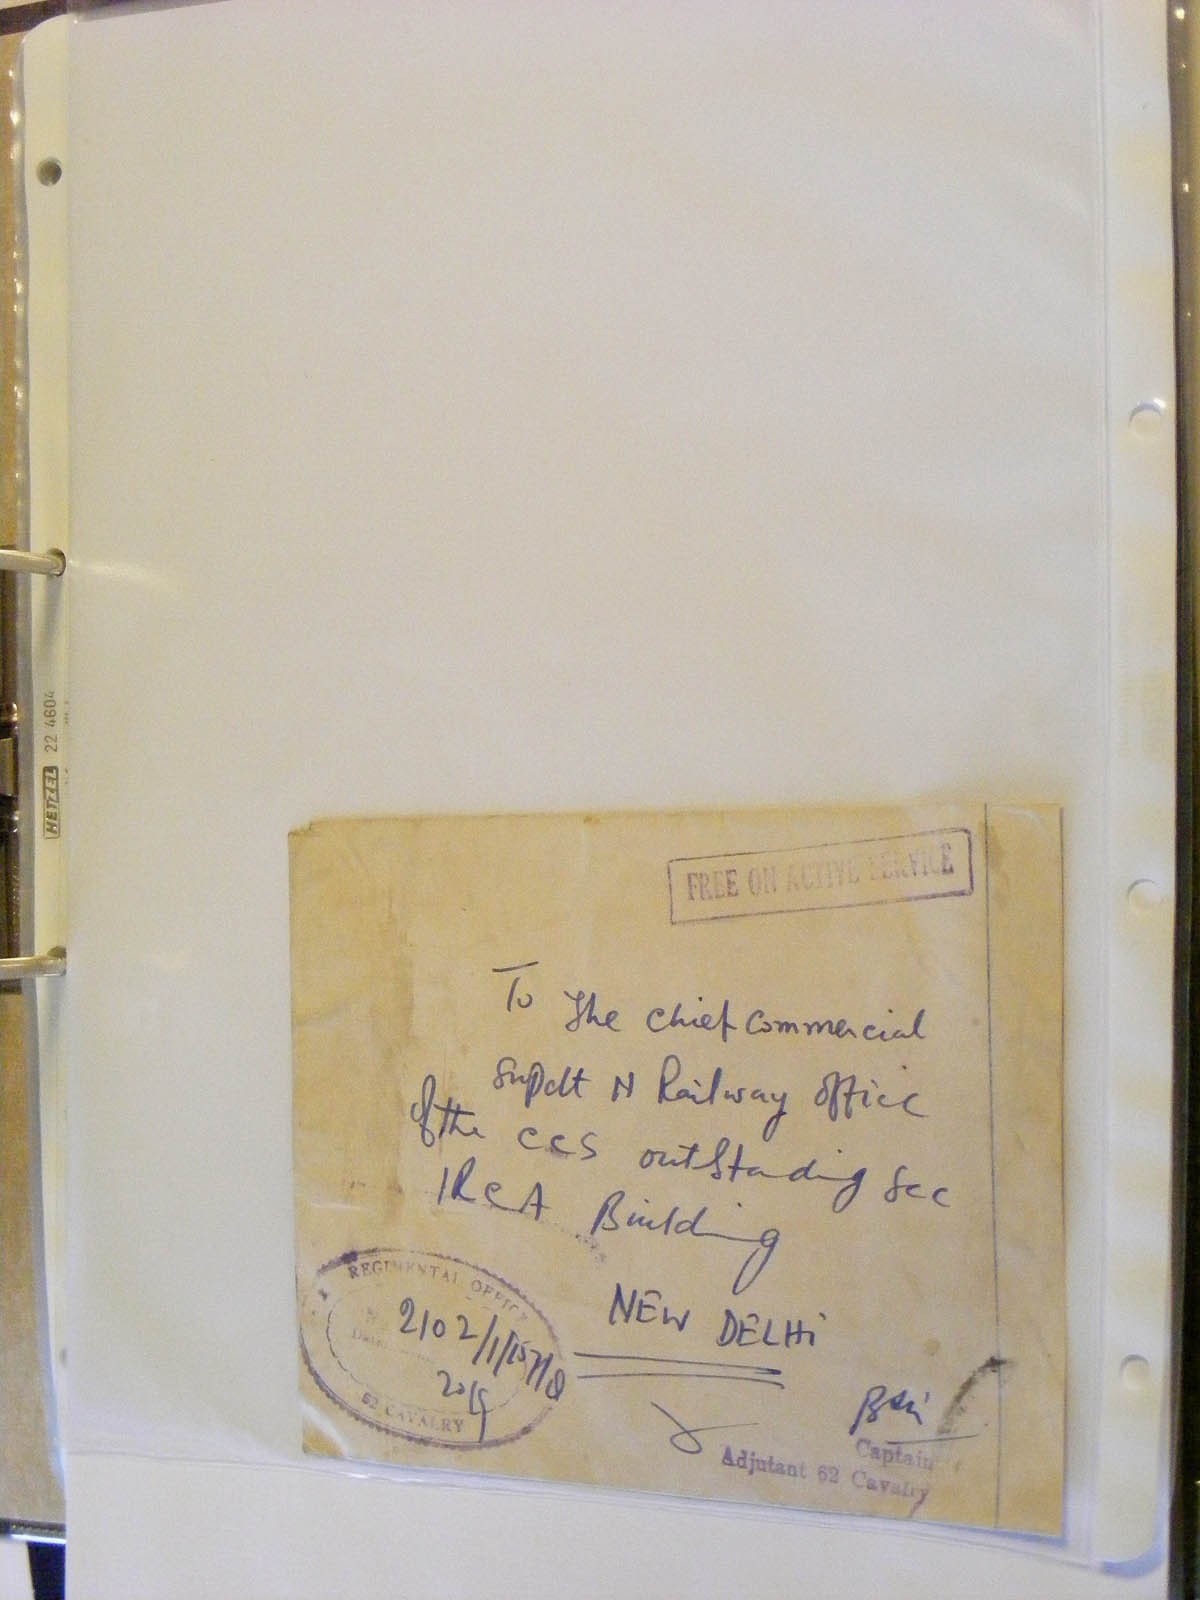 HETZEL 22 4604
FREE ON ACTIVE SERVICE
To The Chief Commercial
Supdt N Railway Office
of the CCS outstanding Sec
IRCA Building
NEW DELHi
REGIMENTAL OFFICE
2102/1/157/Q
20/9
62 CAVALRY
Captain
Adjutant 62 Cavalry